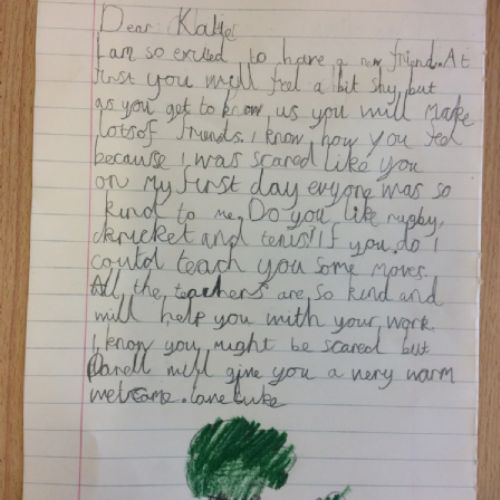 Dear Katie
I am so exicted to have a new friend. At
first you will feel a bit shy but
as you get to know us you will make
lotsof friends. I know how you feel
because I was scared like you
on my first day evryone was so
kind to me. Do you like rugby,
ckricket and tenis? If you do I
could teach you some moves.
All the teachers are so kind and
will help you with your work.
I know you might be scared but
will give you a very warm
welcome. love Luke